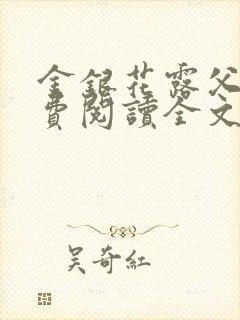 金銀花露父
費閱讀全文
吴奇紅